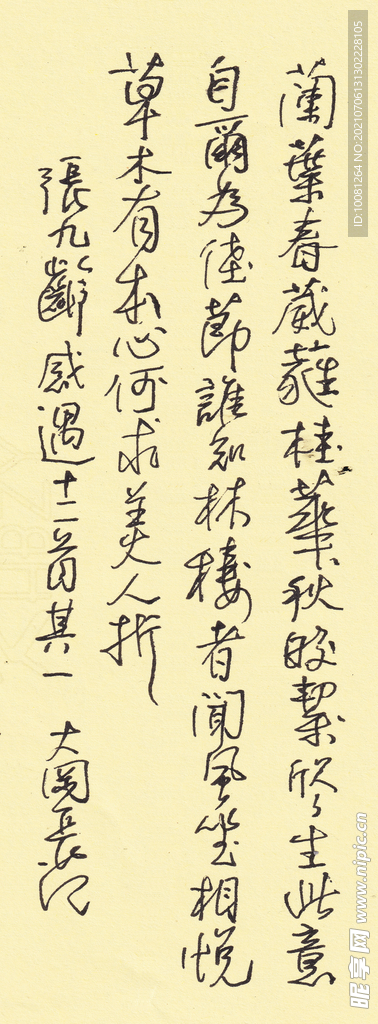 蘭葉春葳蕤桂華秋皎絜欣々生此意
自爾為佳節誰知林棲者聞風坐相悅
草木有本心何求美人折
張九齡感遇十二首其一 大閑長江
ID:10081264 NO:20210706131302228105
昵享网 www.nipic.cn